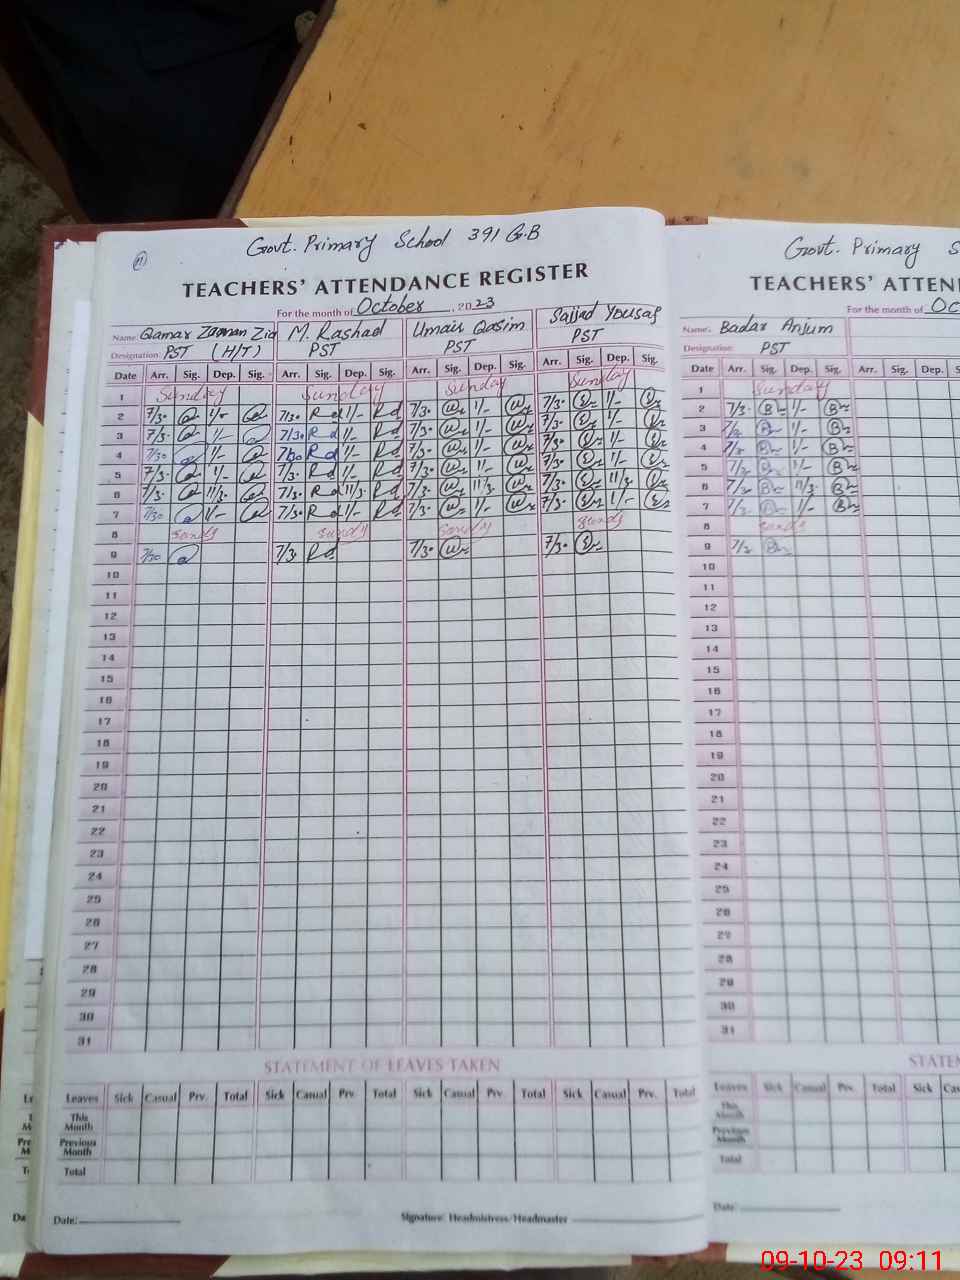 Govt. Primary School 391 G.B
TEACHERS' ATTENDANCE REGISTER
For the month of October, 2023
Name: Qamar Zaman Zia M. Rashad Umair Qasim Sajjad Yousaf
Designation: PST (H/T) PST PST PST
Date Arr. Sig. Dep. Sig. Arr. Sig. Dep. Sig. Arr. Sig. Dep. Sig. Arr. Sig. Dep. Sig.
1 Sunday Sunday Sunday Sunday
2 7/3. 1/- 7/30 Rd 1/- Rd 7/3. 1/- 7/3. 1/-
3 7/3. 1/- 7/30 Rd 1/- Rd 7/3. 1/- 7/3. 1/-
4 7/30 1/- 7/30 Rd 1/- Rd 7/3. 1/- 7/3. 1/-
5 7/3. 1/- 7/3. Rd 1/- Rd 7/3. 1/- 7/3. 1/-
6 7/3. 11/3. 7/3. Rd 11/3. Rd 7/3. 11/3. 7/3. 11/3.
7 7/30 1/- 7/3. Rd 1/- Rd 7/3. 1/- 7/3. 1/-
8
9 7/30 7/3. Rd 7/3. 7/3.
10
11
12
13
14
15
16
17
18
19
20
21
22
23
24
25
26
27
28
29
30
31
STATEMENT OF LEAVES TAKEN
Leaves Sick Casual Prv. Total Sick Casual Prv. Total Sick Casual Prv. Total Sick Casual Prv. Total
This Month
Previous Month
Total
Date: Signature: Headmistress/Headmaster
Govt. Primary S
TEACHERS' ATTEN
For the month of Oc
Name: Badar Anjum
Designation: PST
Date Arr. Sig. Dep. Sig. Arr. Sig. Dep. S
1 Sunday
2 7/3. 1/-
3 1/-
4 1/-
5 1/-
6 11/3.
7 1/-
8
9
10
11
12
13
14
15
16
17
18
19
20
21
22
23
24
25
26
27
28
29
30
31
STATEM
Leaves Sick Casual Prv. Total Sick Cas
This Month
Previous Month
Total
Date:
09-10-23 09:11